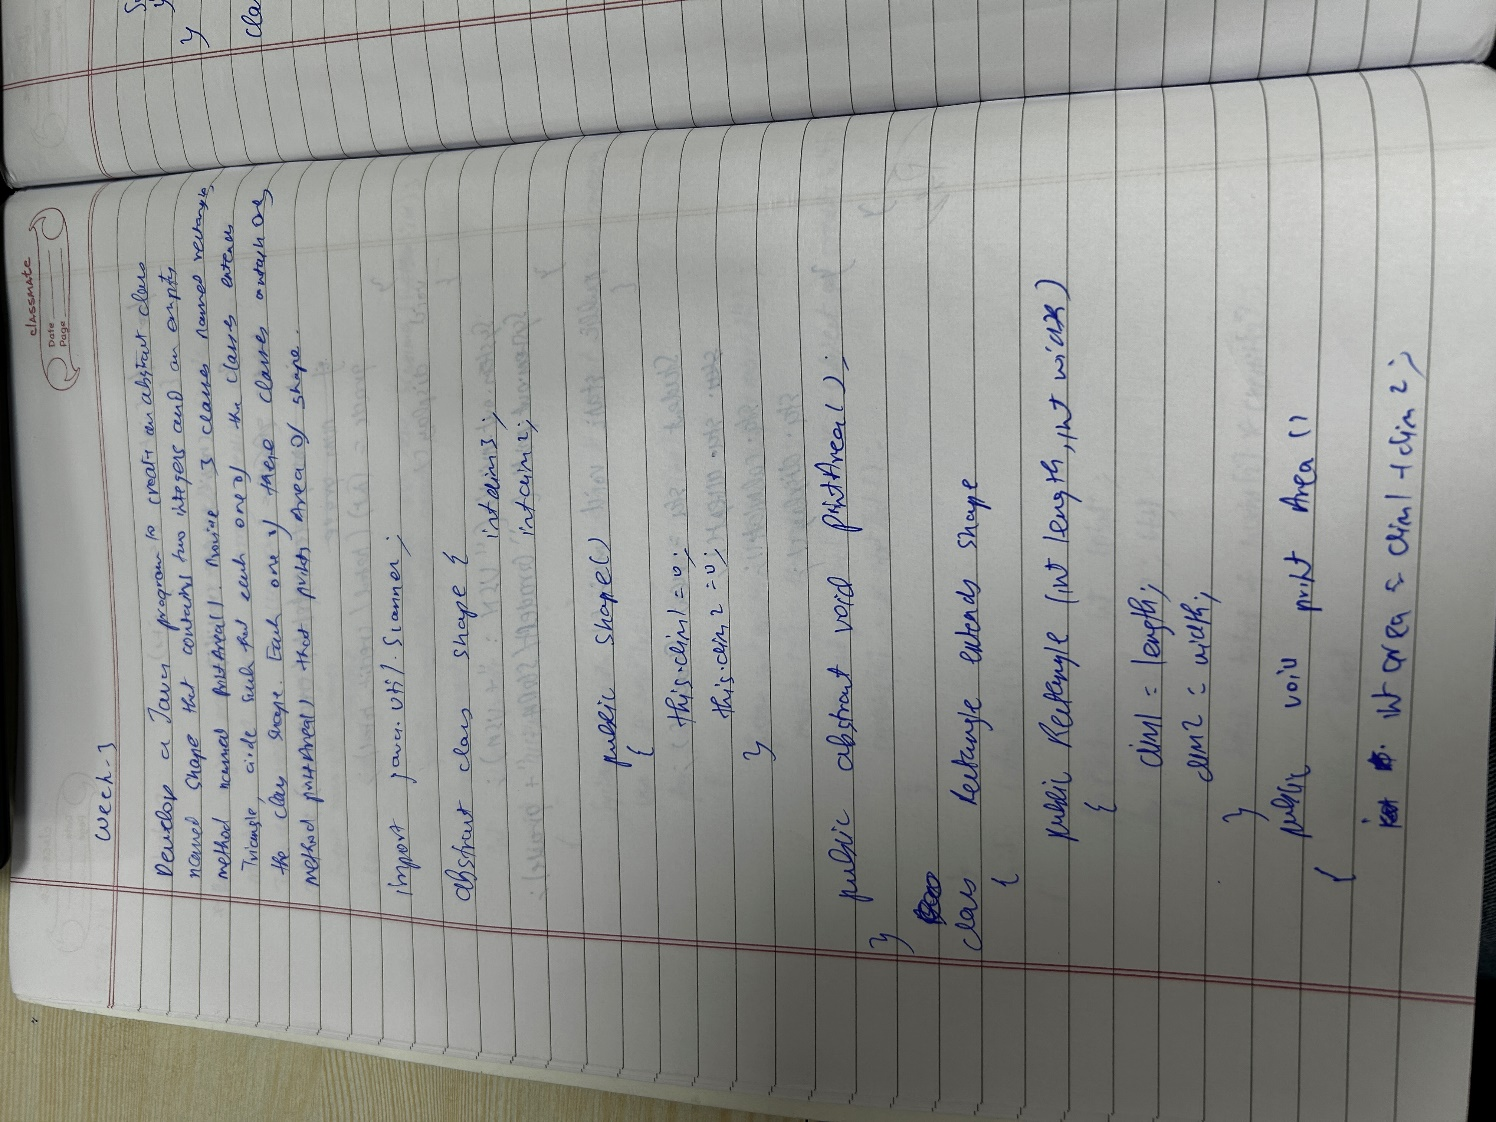 classmate
Date
Page
week-3
Develop a Java program to create an abstract class
named shape that contains two integers and an empty
method named printArea(). Provide 3 classes named rectangle,
Triangle such that each one of the classes extends
the class shape. Each one of these classes contain only
method printArea() that prints Area of shape.
import java.util.Scanner;
abstract class shape {
int dim1;
int dim2;
public shape()
{
this.dim1 = 0;
this.dim2 = 0;
}
public abstract void printArea();
}
class Rectangle extends shape
{
public Rectangle (int length, int width)
{
dim1 = length;
dim2 = width;
}
public void print Area ()
{
int area = dim1 * dim2;